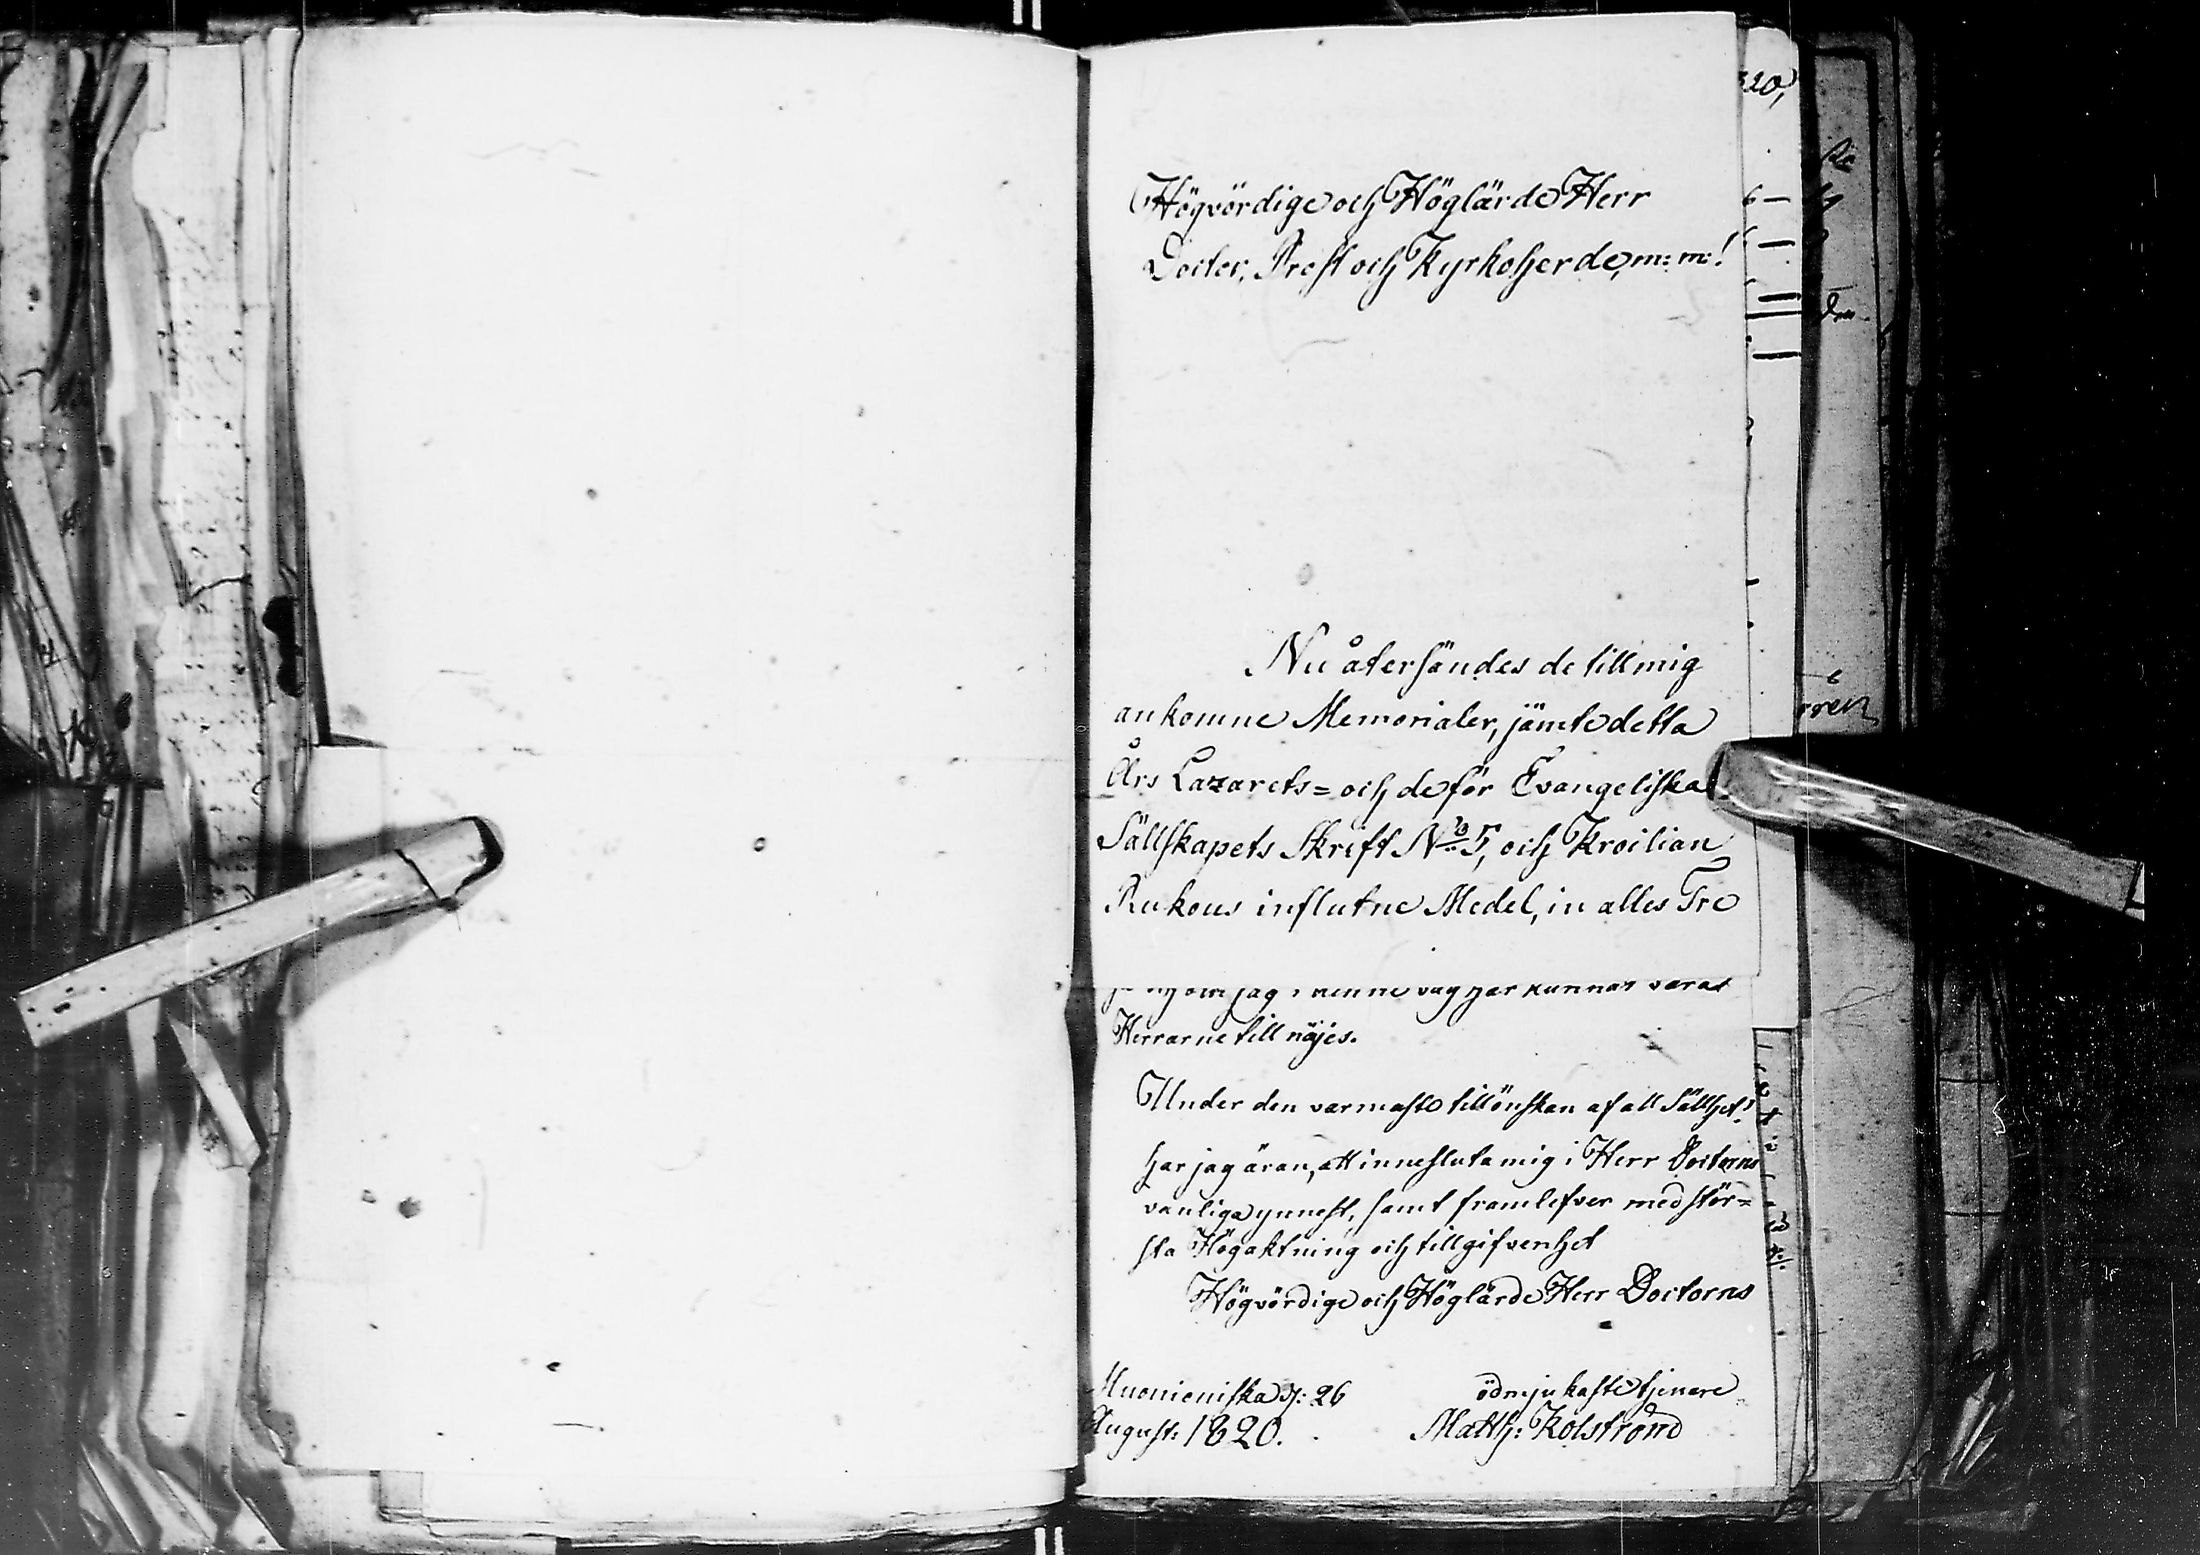 Högvördige och Höglärde Herr
Docter, Prost och Kyrkoherde, m: m:!
Nu återsändes de till mig
ankomne Memorialer, jämte detta
Års Lazarets= och de för Evangeliska
Sällskapets Skrift N:o 5, och Kroilian
Rukous influtne Medel, in alles Tre
jag i denne väg har kunnat vara
Herrarne till nöjes.
Under den varmaste tillönskan af all Sällhet!
har jag äran, att innesluta mig i Herr Doctorns
vanliga ynnest, samt framlefver med stör=
sta Högaktning och tillgifvenhet
Högvördige och Höglärde Herr Doctorns
Muonioniska d: 26
August: 1820.
ödmjukaste tjenare
Matth: Kolström